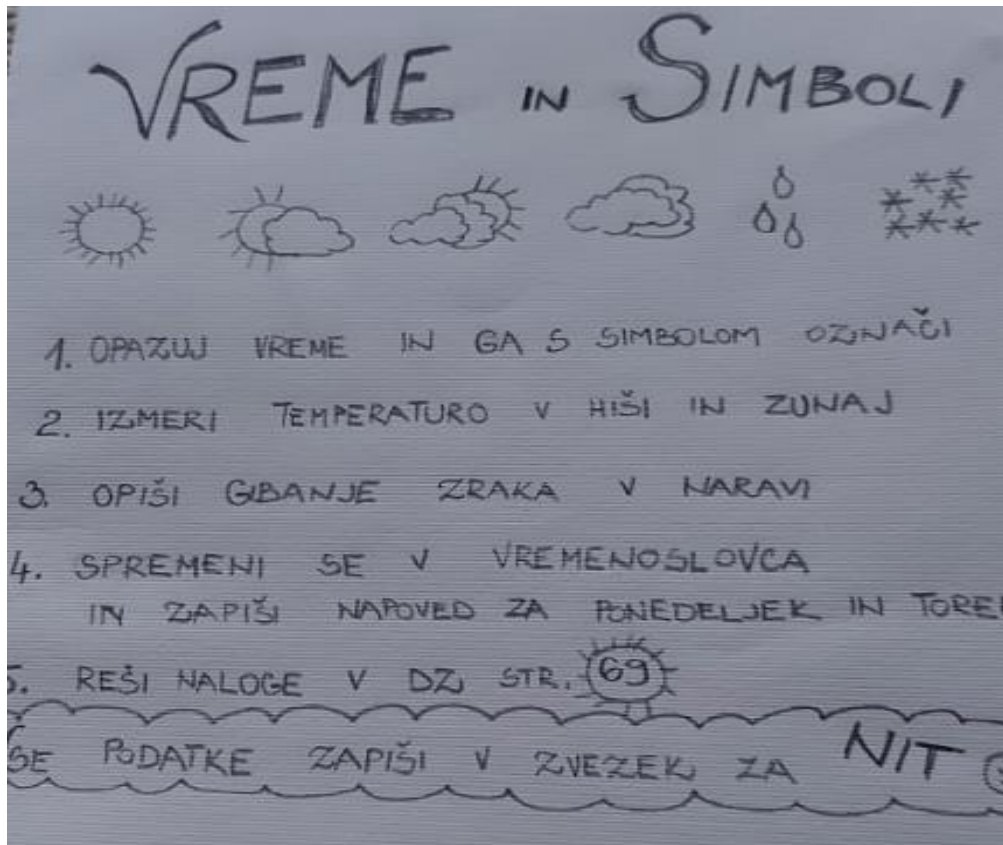 VREME IN SIMBOLI
1. OPAZUJ VREME IN GA S SIMBOLOM OZNAČI
2. IZMERI TEMPERATURO V HIŠI IN ZUNAJ
3. OPIŠI GIBANJE ZRAKA V NARAVI
4. SPREMENI SE V VREMENOSLOVCA
IN ZAPIŠI NAPOVED ZA PONEDELJEK IN TOREK
5. REŠI NALOGE V DZ, STR. 69
SE PODATKE ZAPIŠI V ZVEZEK ZA NIT